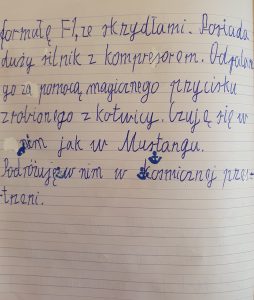 formułę F1, ze skrzydłami. Posiada
duży silnik z kompresorem. Odpalam
go za pomocą magicznego przycisku
zrobionego z kotwicy. Czuję się w
nim jak w Mustangu.
Podróżuję w nim w kosmicznej prze-
trzeni.